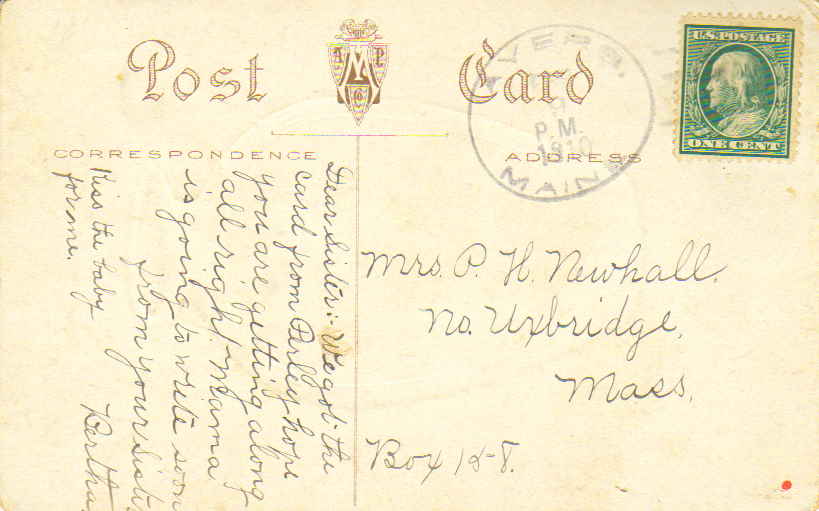 Post Card
A M P Co
AYERS.
P.M.
1910
MAINE
U.S. POSTAGE
ONE CENT
CORRESPONDENCE
ADDRESS
Dear Sister: We got the
card from Perley hope
you are getting along
all right. Mama
is going to write soon
from your Siste
Bertha.
Kiss the baby
for me.
Mrs. P. H. Newhall.
No. Uxbridge,
Mass.
Box 158.